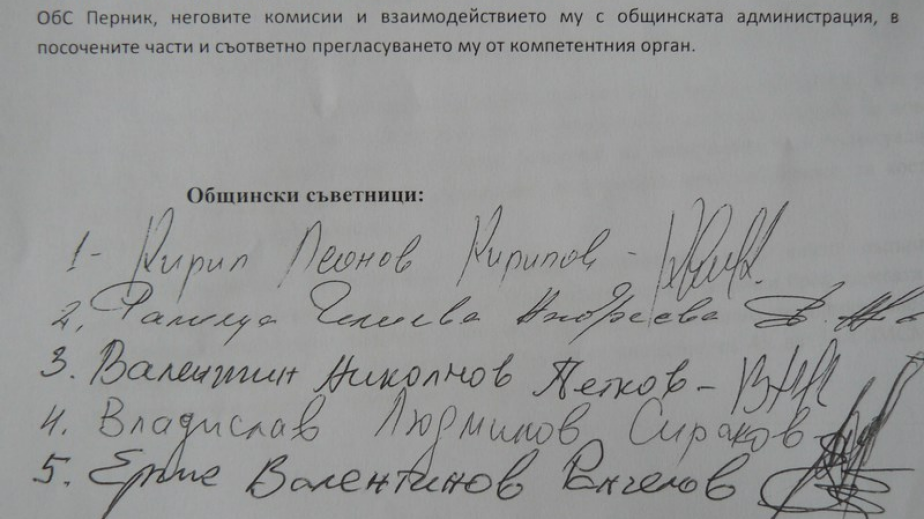 ОбС Перник, неговите комисии и взаимодействието му с общинската администрация, в
посочените части и съответно прегласуването му от компетентния орган.
Общински съветници:
1- Кирил Леонов Кирилов -
2. Андреева
3. Валентин Николов Петков -
4. Владислав Людмилов Сираков
5. Валентинов Рангелов